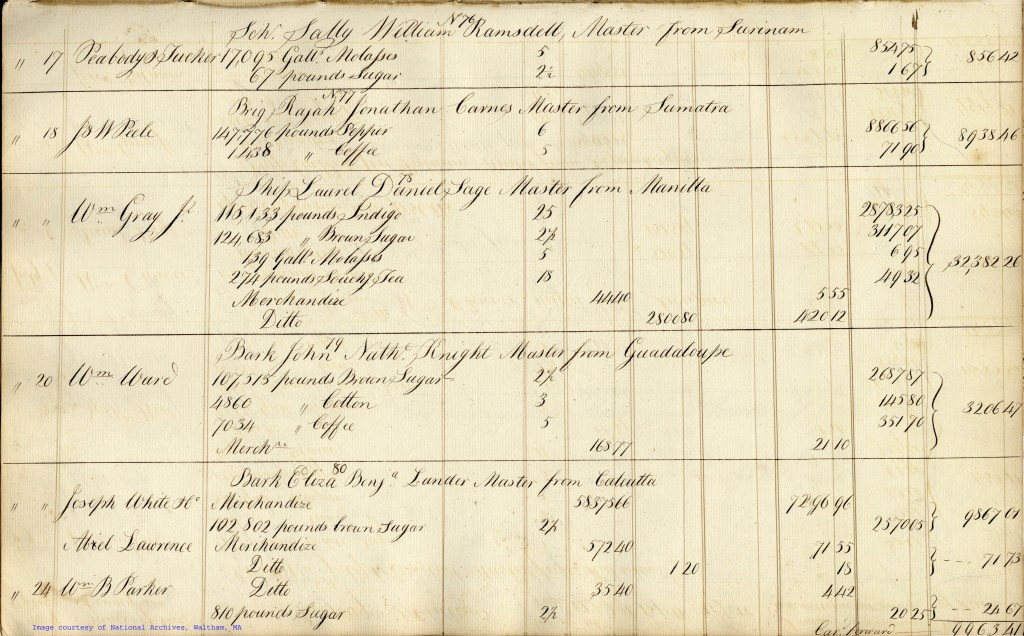 Schr Sally N76 William Ramsdell, Master from Surinam
" 17 Peabody & Tucker 17,095 Galls Molasses 5 85475 85642
67 pounds Sugar 2½ 167
Brig Rajah N77 Jonathan Carnes Master from Sumatra
" 18 J & W Peele 147,776 pounds Pepper 6 886656 893846
1438 " Coffee 5 7190
Ship Laurel 78 Daniel Sage Master from Manilla
" " Wm Gray Jr 115,133 pounds Indigo 25 2878325 32,38226
124,683 " Brown Sugar 2½ 311707
139 Galls Molasses 5 695
274 pounds Souchg Tea 18 4932
Merchandize 4440 555
Ditto 28080 42012
Bark John 79 Nathl Knight Master from Guadaloupe
" 20 Wm Ward 107,515 pounds Brown Sugar 2½ 268787 320647
4860 " Cotton 3 14580
7034 " Coffee 5 35170
Merchze 16877 2110
Bark Eliza 80 Benja Lander Master from Calcutta
" " Joseph White Merchandize 5837566 729696 986701
102,802 pounds brown Sugar 2½ 257005
Abel Lawrence Merchandize 57240 7155 7173
Ditto 120 18
" 24 Wm B Parker Ditto 3540 442
810 pounds Sugar 2½ 2025 2467
Card forward
Image courtesy of National Archives, Waltham, MA